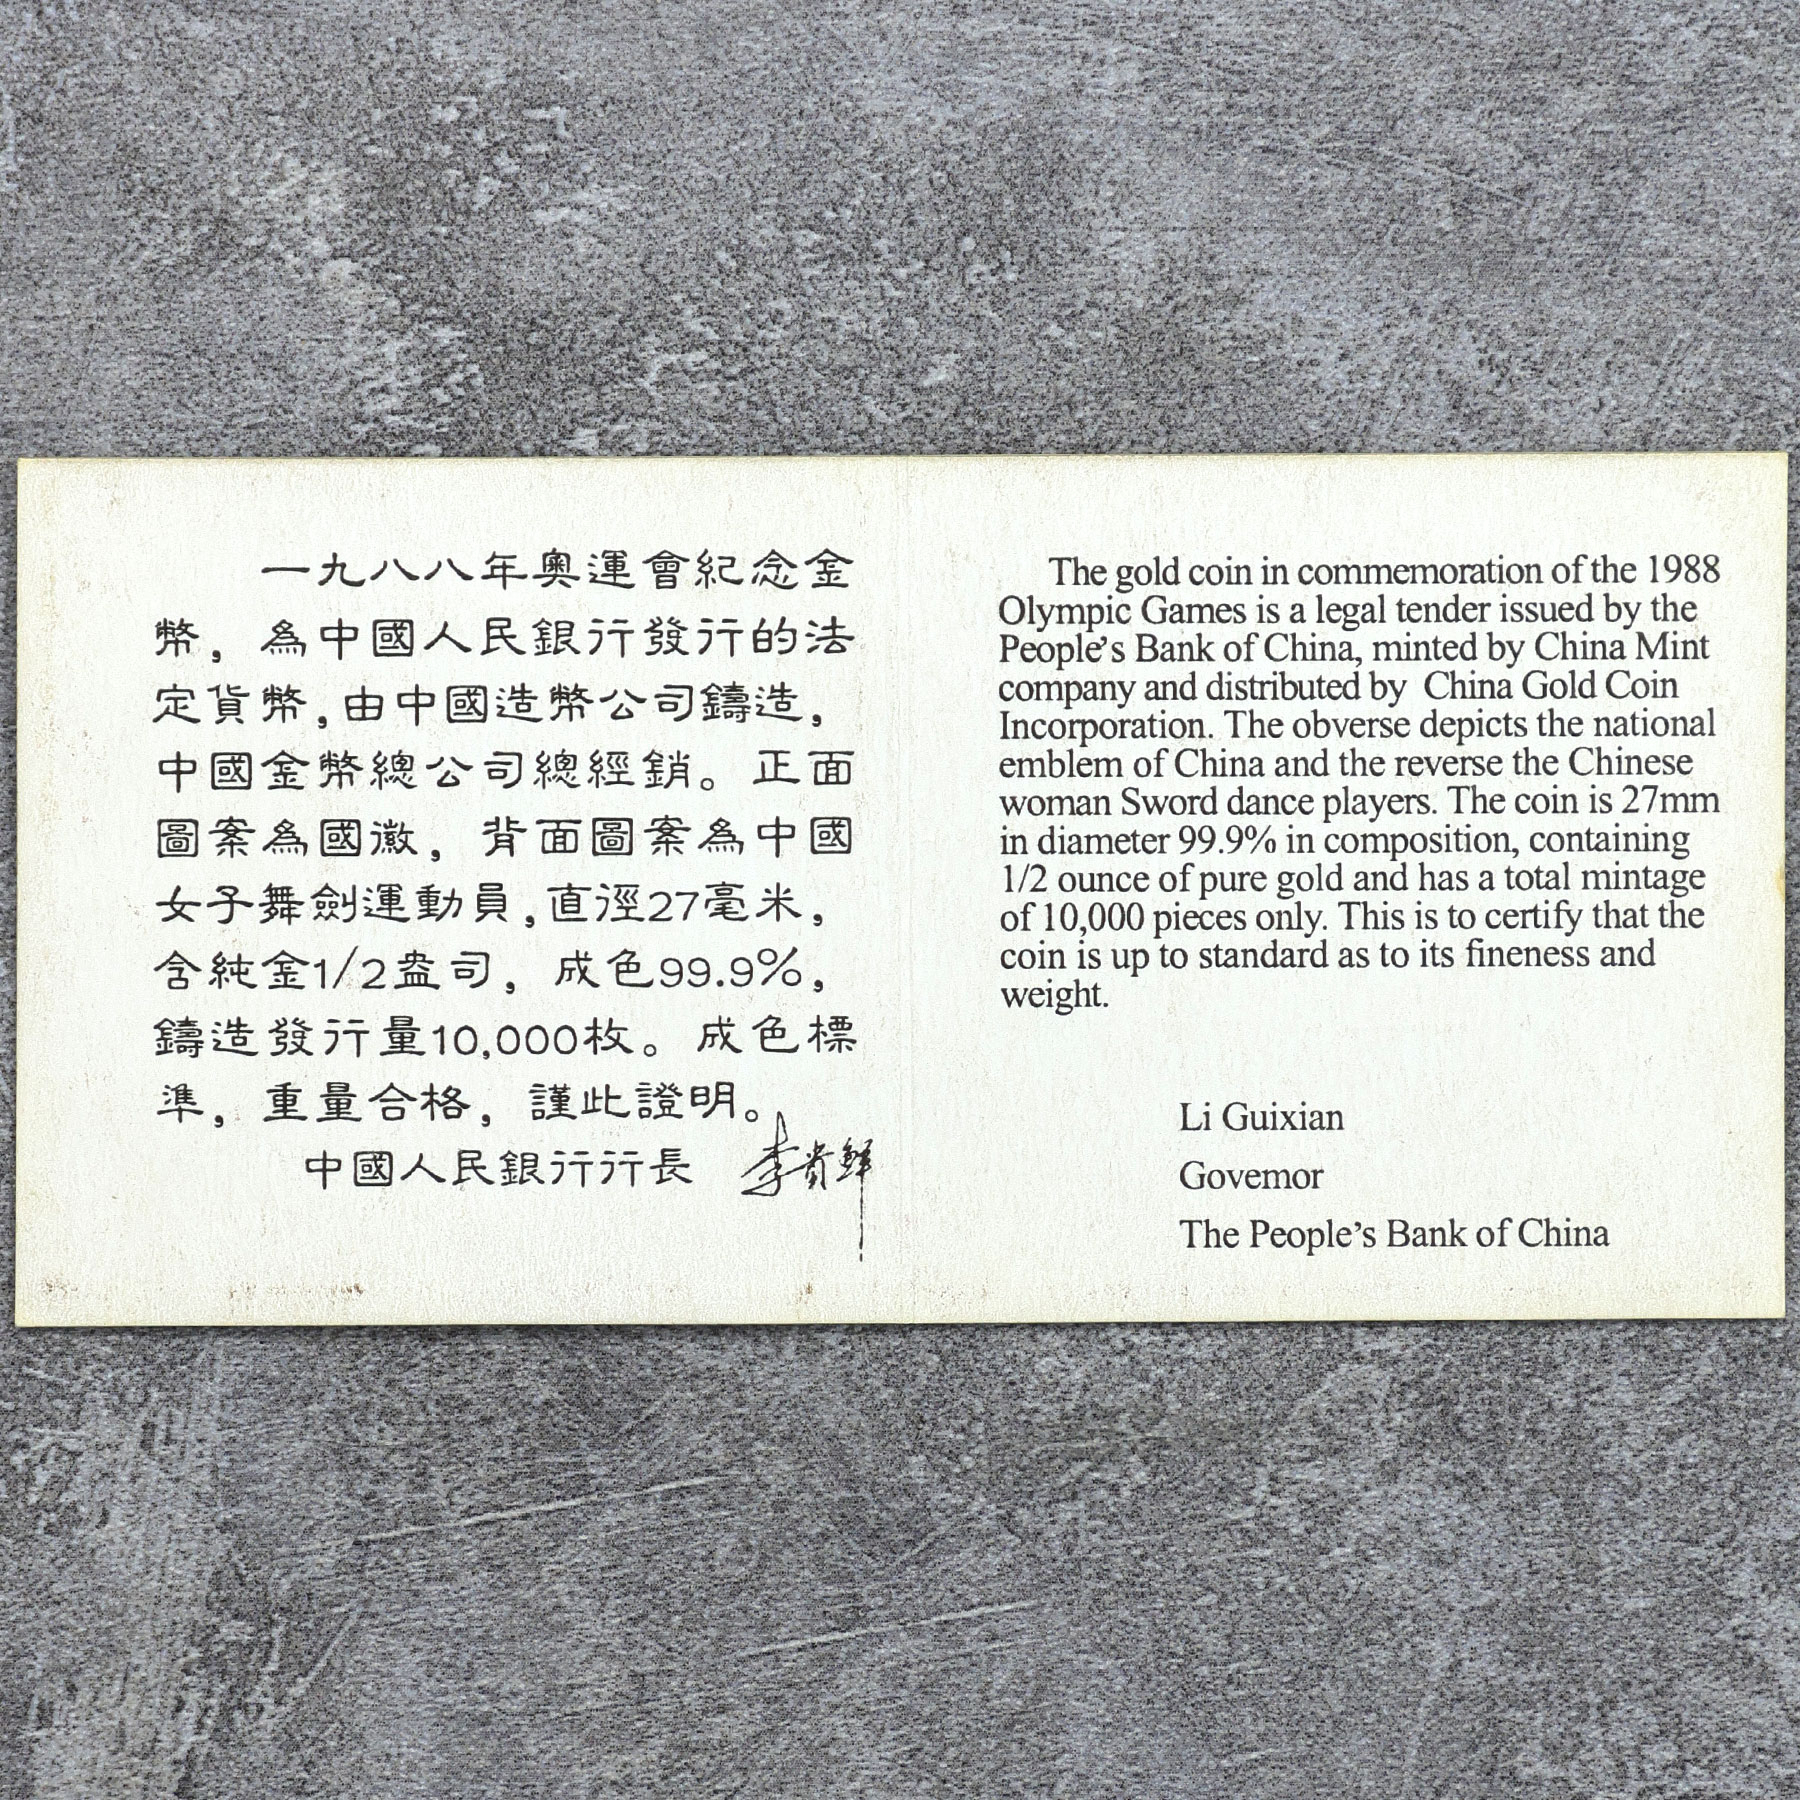 一九八八年奧運會紀念金
幣，為中國人民銀行發行的法
定貨幣，由中國造幣公司鑄造，
中國金幣總公司總經銷。正面
圖案為國徽，背面圖案為中國
女子舞劍運動員，直徑27毫米，
含純金1/2盎司，成色99.9%，
鑄造發行量10,000枚。成色標
準，重量合格，謹此證明。
中國人民銀行行長 李貴鮮
The gold coin in commemoration of the 1988
Olympic Games is a legal tender issued by the
People's Bank of China, minted by China Mint
company and distributed by China Gold Coin
Incorporation. The obverse depicts the national
emblem of China and the reverse the Chinese
woman Sword dance players. The coin is 27mm
in diameter 99.9% in composition, containing
1/2 ounce of pure gold and has a total mintage
of 10,000 pieces only. This is to certify that the
coin is up to standard as to its fineness and
weight.
Li Guixian
Govemor
The People's Bank of China